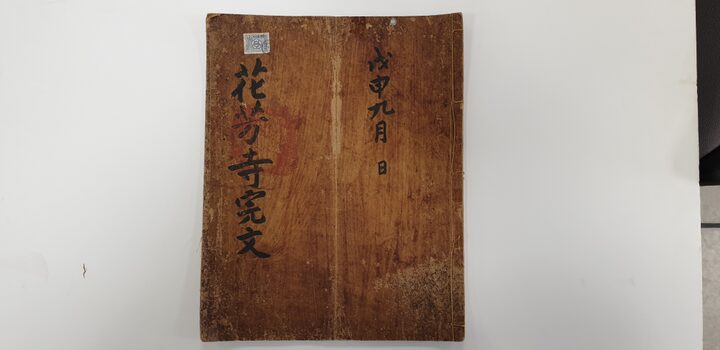 戊申九月 日
花芳寺完文